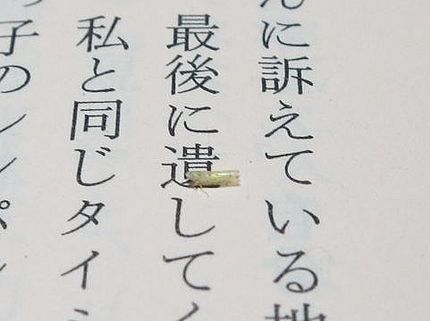 んに訴えている地
最後に遺してく
私と同じタイミ
子のシンパシ